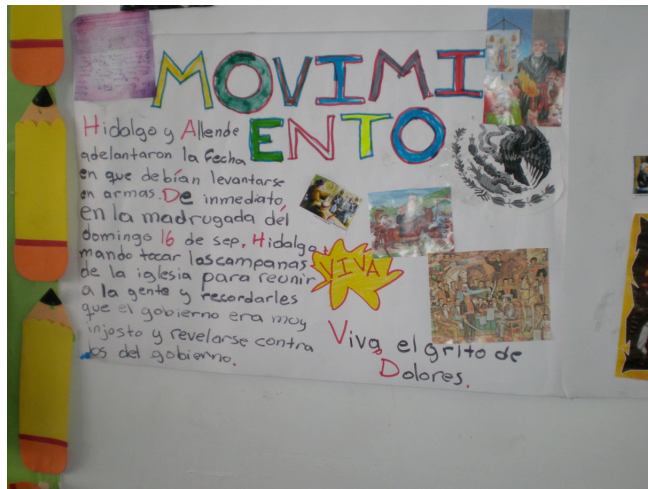 MOVIMI
ENTO
Hidalgo y Allende
adelantaron la fecha
en que debían levantarse
en armas. De inmediato,
en la madrugada del
domingo 16 de sep. Hidalgo
mando tocar las campanas
de la iglesia para reunir
a la gente y recordarles
que el gobierno era muy
injosto y revelarse contra
los del gobierno.
VIVA
Viva el grito de
Dolores.